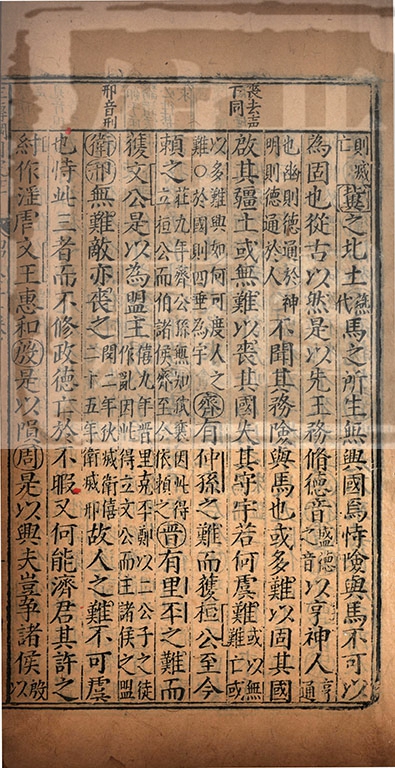 喪去聲
下同
邢音刑
則滅
亡
冀之北土
燕
代
馬之所生無興國焉恃險與馬不可以
為固也從古以然是以先王務脩德音
盛德
之音
以亨神人
亨
通
也幽則德通於神
明則德通於人
不聞其務險與馬也或多難以固其國
啟其疆土或無難以喪其國失其守宇若何虞難
或以無
難亡或
以多難興如何可度人之
難○於國則四垂為宇
齊有仲孫之難而獲桓公至今
賴之
莊九年齊公孫無知弒襄因此得
立桓公而伯諸侯齊至今依賴之
晉有里丕之難而
獲文公是以為盟主
僖九年晉里克丕鄭以二公子之徒
作亂因此得立文公而主諸侯之盟
衛邢無難敵亦喪之
閔二年狄滅衛僖
二十五年衛滅邢
故人之難不可虞
也恃此三者而不修政德亡於不暇又何能濟君其許之
紂作淫虐文王惠和殷是以隕周是以興夫豈爭諸侯
殷
以